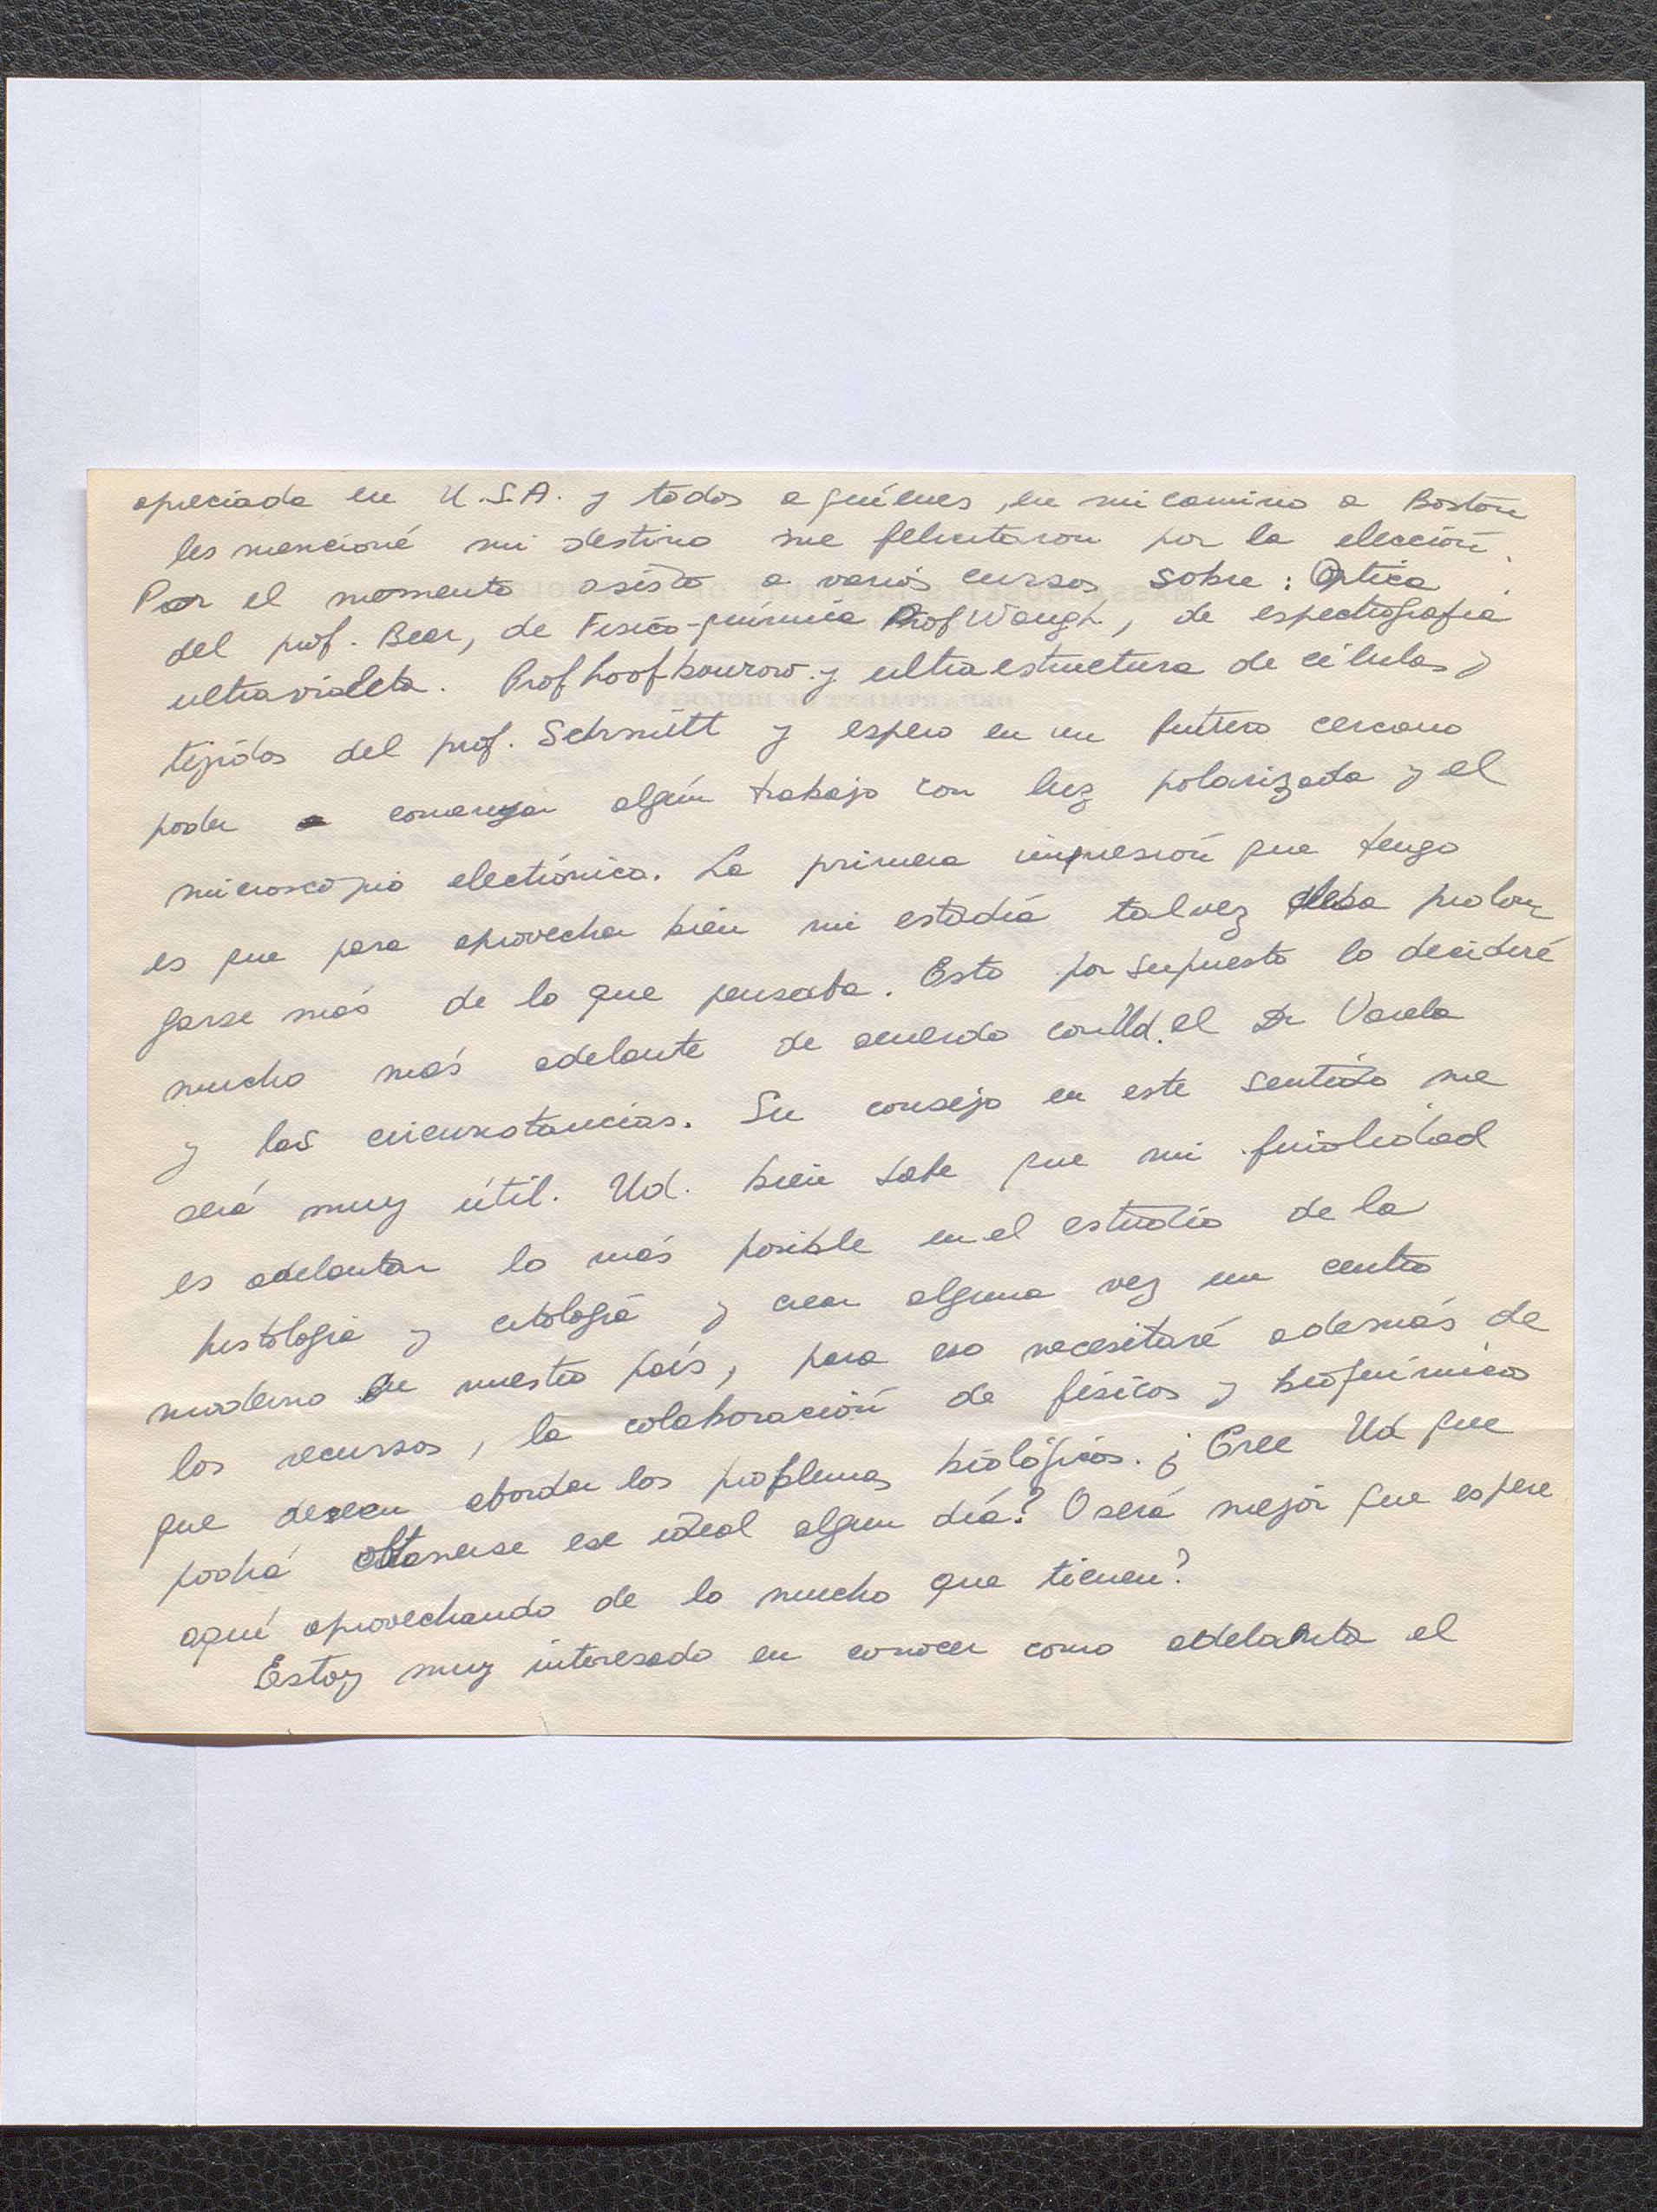 apreciada en U.S.A. y todos a quiénes, en mi camino a Boston
les mencioné mi destino me felicitaron por la elección.
Por el momento asisto a varios cursos sobre: Optica
del prof. Bear, de Fisico-química Prof Waugh, de espectografia
ultravioleta. Prof Loofbourow y ultraestructura de células y
tejidos del prof. Schmitt y espero en un futuro cercano
poder comenzar algún trabajo con luz polarizada y el
microscopio electrónico. La primera impresión que tengo
es que para aprovechar bien mi estadía talvez deba prolon
garse más de lo que pensaba. Esto por supuesto lo decidiré
mucho más adelante de acuerdo con Ud. el Dr Varela
y las circunstancias. Su consejo en este sentido me
será muy útil. Ud. bien sabe que mi finalidad
es adelantar lo más posible en el estudio de la
histología y citología y crear alguna vez un centro
moderno en nuestro país, para eso necesitaré además de
los recursos, la colaboración de físicos y bioquímicos
que deseen abordar los problemas biológicos. ¿Cree Ud que
podrá obtenerse ese ideal algun día? O será mejor que espere
aquí aprovechando de lo mucho que tienen?
Estoy muy interesado en conocer como adelanta el